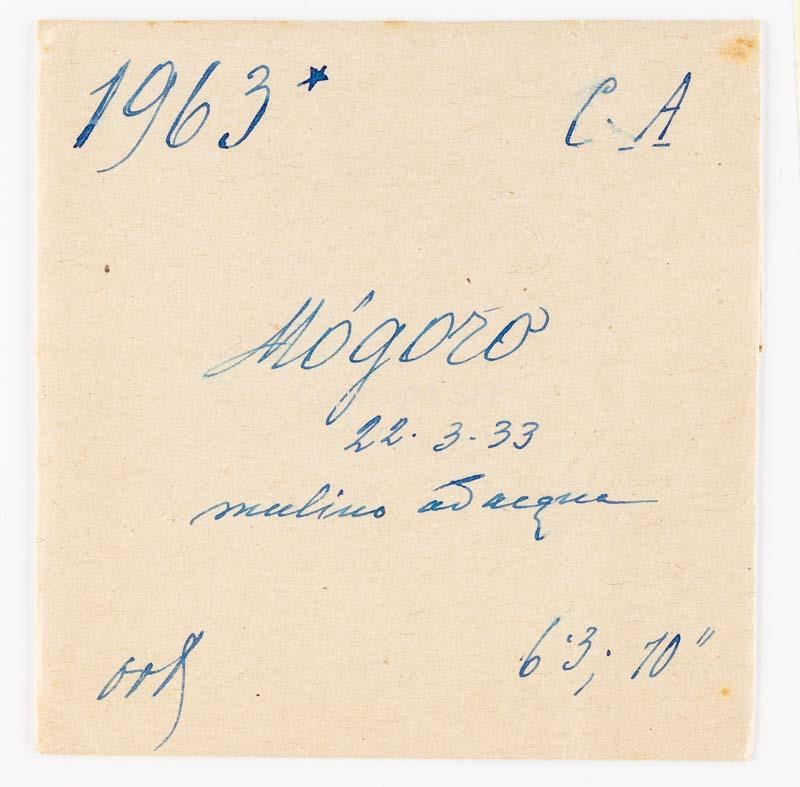 1963* C. A
Mógoro
22.3.33
mulino ad acqua
6.3; 10"